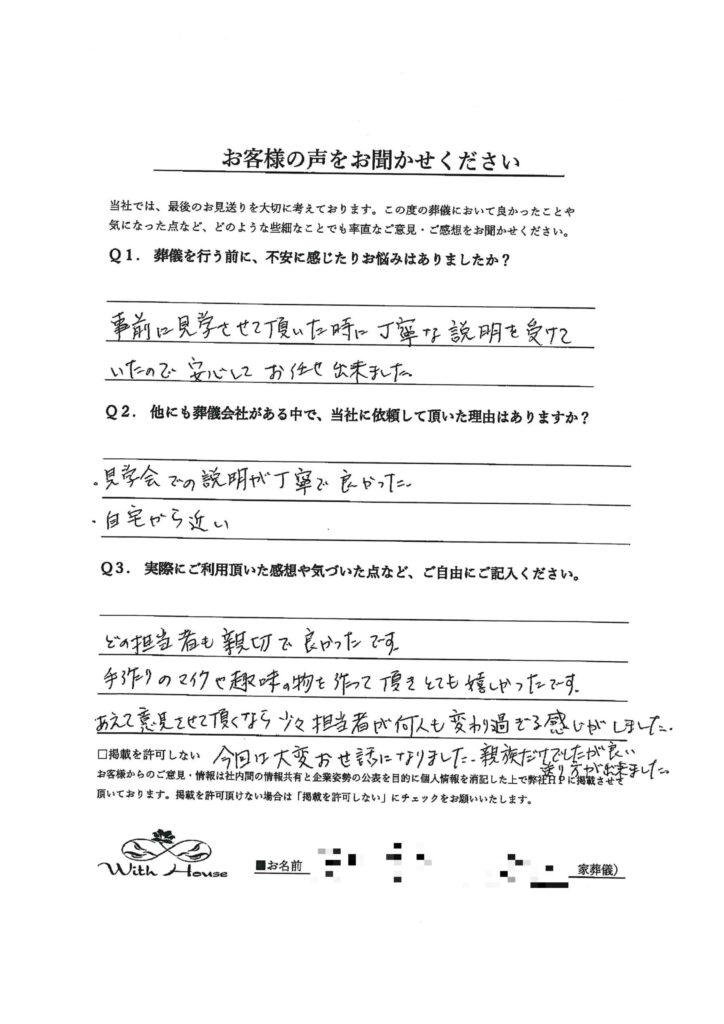 お客様の声をお聞かせください
当社では、最後のお見送りを大切に考えております。この度の葬儀において良かったことや
気になった点など、どのような些細なことでも率直なご意見・ご感想をお聞かせください。
Q1. 葬儀を行う前に、不安に感じたりお悩みはありましたか？
事前に見学させて頂いた時に丁寧な説明を受けて
いたので安心してお任せ出来ました。
Q2. 他にも葬儀会社がある中で、当社に依頼して頂いた理由はありますか？
・見学会での説明が丁寧で良かった。
・自宅から近い
Q3. 実際にご利用頂いた感想や気づいた点など、ご自由にご記入ください。
どの担当者も親切で良かったです。
手作りのマイクや趣味の物を作って頂きとても嬉しかったです。
あえて意見させて頂くなら少々担当者が何人も変わり過ぎる感じがしました。
□掲載を許可しない 今回は大変お世話になりました。親族だけでしたが良い
送り方が出来ました。
お客様からのご意見・情報は社内間の情報共有と企業姿勢の公表を目的に個人情報を消記した上で弊社HPに掲載させて
頂いております。掲載を許可頂けない場合は「掲載を許可しない」にチェックをお願いいたします。
With House
■お名前 家葬儀）